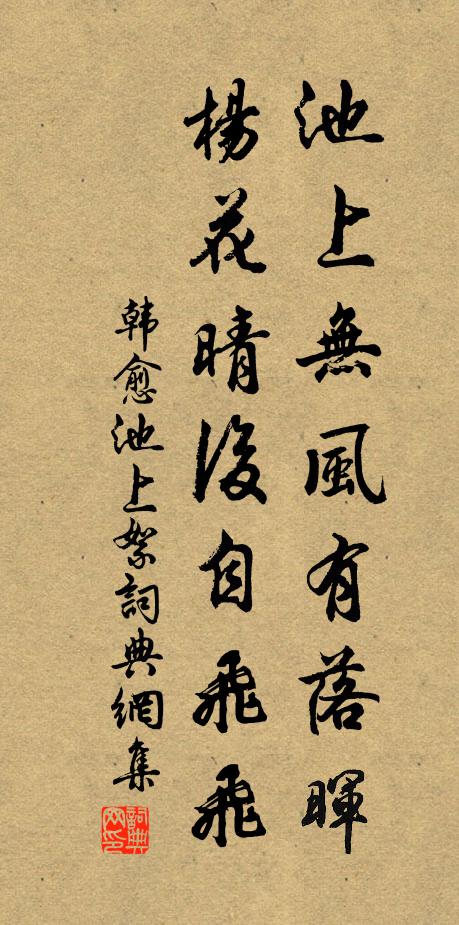 池上無風有落暉
楊花晴後自飛飛
韓愈池上絮詞典網集
詞典网印